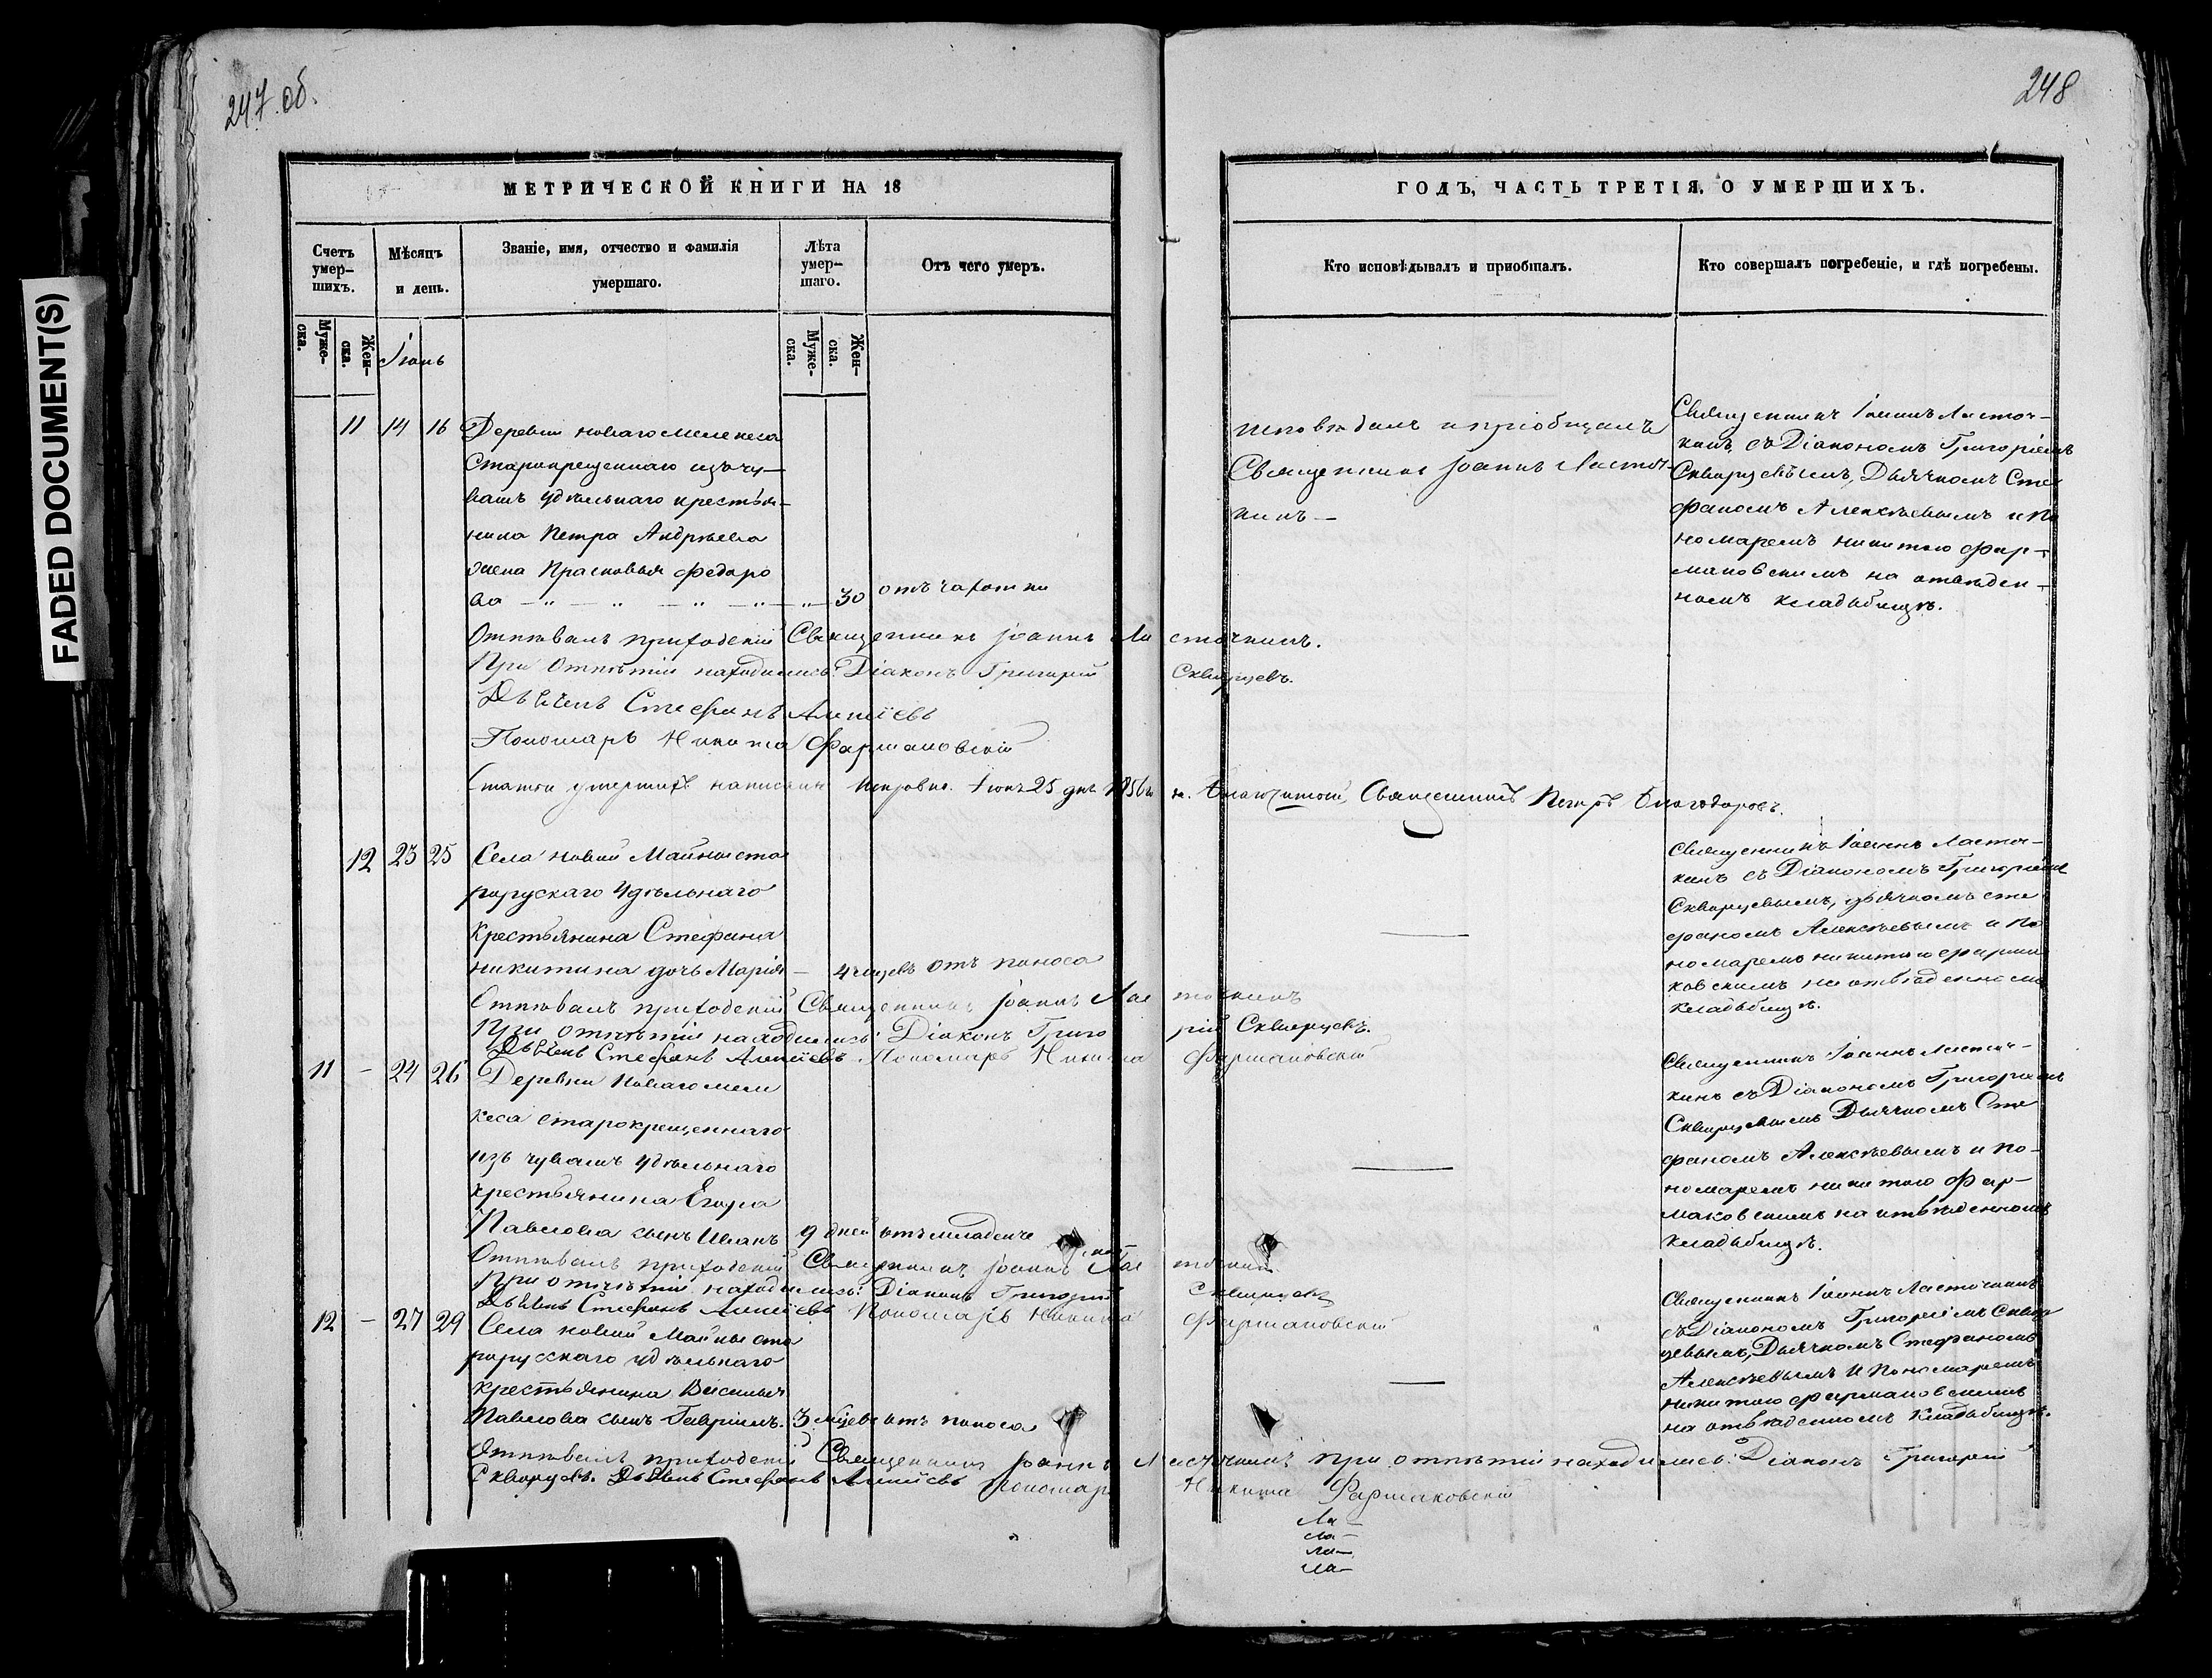 247 об.
248
FADED DOCUMENT(S)
МЕТРИЧЕСКОЙ КНИГИ НА 18
ГОДЪ, ЧАСТЬ ТРЕТІЯ, О УМЕРШИХЪ.
Счетъ умер-
шихъ.
Мѣсяцъ
и день.
Званіе, имя, отчество и фамилія
умершаго.
Лѣта
умер-
шаго.
Отъ чего умеръ.
Кто исповѣдывалъ и приобщалъ.
Кто совершалъ погребеніе, и гдѣ погребены.
Муже-
ска.
Жен-
ска.
Муже-
ска.
Жен-
ска.
Іюнь
11 14 16 Деревни новаго мелекеса
старокрещеннаго изъ чу-
вашъ удѣльнаго крестья-
нина Петра Андрѣева
жена Прасковья Федоро
ва 30 отъ чахотки
исповѣдалъ и пріобщалъ
Священникъ Іоаннъ Ласточ-
кинъ —
Священникъ Іоаннъ Ласточ-
кинъ, съ Діакономъ Григоріемъ
Скворцевымъ, Дьячкомъ Сте
фаномъ Алексѣевымъ и по
номаремъ никитою фар-
маковскимъ на отведен-
номъ кладбищѣ.
Отпѣвалъ приходскій Священникъ Іоаннъ Ласточкинъ.
При отпѣтіи находились: Діаконъ Григорій Скворцевъ.
Дьячекъ Стефанъ Алексіевъ
Пономарь Никита Фармаковскій
Статьи умершихъ написаны исправно. Іюня 25 дня 1856 Священникъ Петръ
12 23 25 Села новой Майны ста
рорускаго удѣльнаго
крестьянина Стефана
никитина дочь Марія — 4 мцевъ отъ поноса
—
Священникъ Іоаннъ Ласточ-
кинъ съ Діакономъ Григоріемъ
Скворцевымъ, дьячкомъ сте
фаномъ Алексѣевымъ и по
номаремъ никитою фарма
ковскимъ на отведенномъ
кладбищѣ.
Отпѣвалъ приходскій Священникъ Іоаннъ Ласточкинъ
При отпѣтіи находились: Діаконъ Григорій Скворцевъ.
Дьячекъ Стефанъ Алексіевъ. Пономарь Никита Фармаковскій
11 — 24 26 Деревни Новаго меле
кеса старокрещеннаго
изъ чувашъ удѣльнаго
крестьянина Егора
Павлова сынъ Иванъ 9 дней отъ младенче
—
Священникъ Іоаннъ Ласточ-
кинъ съ Діакономъ Григоріемъ
Скворцевымъ Дьячкомъ Сте
фаномъ Алексѣевымъ и по-
номаремъ никитою Фар-
маковскимъ на отведенномъ
кладбищѣ.
Отпѣвалъ приходскій Священникъ Іоаннъ Ласточкинъ
При отпѣтіи находились: Діаконъ Григорій Скворцевъ
Дьячекъ Стефанъ Алексіевъ Пономарь Никита Фармаковскій
12 — 27 29 Села новой Майны ста
рорускаго удѣльнаго
крестьянина Василья
Павлова сынъ Гавріилъ. 3 мцевъ отъ поноса
—
Священникъ Іоаннъ Ласточкинъ
съ Діакономъ Григоріемъ Сквор
цевымъ, Дьячкомъ Стефаномъ
Алексѣевымъ и Пономаремъ
никитою фармаковскимъ
на отведенномъ кладбищѣ.
Отпѣвалъ приходскій Священникъ Іоаннъ Ласточкинъ при отпѣтіи находились: Діаконъ Григорій
Скворцевъ. Дьячекъ Стефанъ Алексіевъ Пономарь Никита Фармаковскій
Ла—
Ла—
Ла—
Ла—